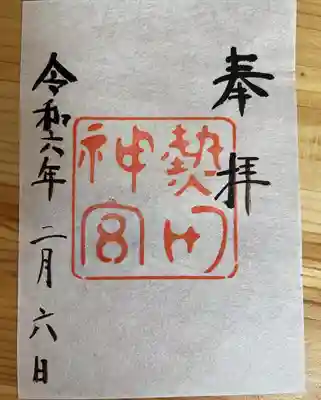 奉拝
熱田
神宮
令和六年 二月 六日